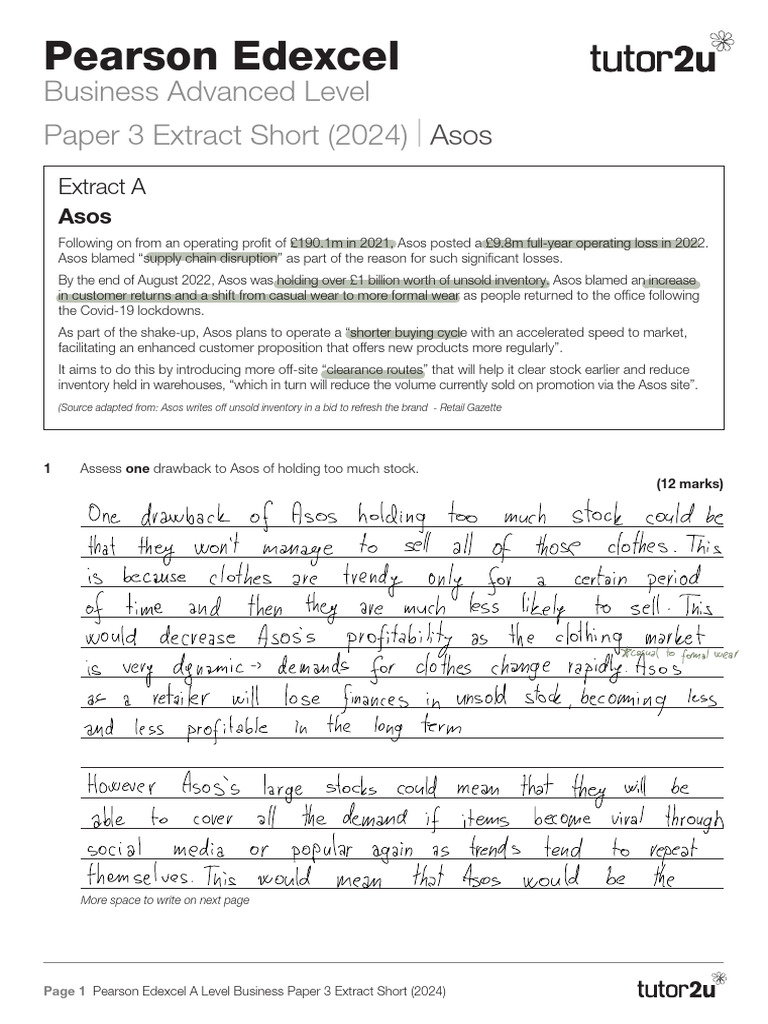 Pearson Edexcel
tutor2u
Business Advanced Level
Paper 3 Extract Short (2024) | Asos
Extract A
Asos
Following on from an operating profit of £190.1m in 2021, Asos posted a £9.8m full-year operating loss in 2022.
Asos blamed “supply chain disruption” as part of the reason for such significant losses.
By the end of August 2022, Asos was holding over £1 billion worth of unsold inventory. Asos blamed an increase
in customer returns and a shift from casual wear to more formal wear as people returned to the office following
the Covid-19 lockdowns.
As part of the shake-up, Asos plans to operate a “shorter buying cycle with an accelerated speed to market,
facilitating an enhanced customer proposition that offers new products more regularly”.
It aims to do this by introducing more off-site “clearance routes” that will help it clear stock earlier and reduce
inventory held in warehouses, “which in turn will reduce the volume currently sold on promotion via the Asos site”.
(Source adapted from: Asos writes off unsold inventory in a bid to refresh the brand - Retail Gazette
1 Assess one drawback to Asos of holding too much stock.
(12 marks)
One drawback of Asos holding too much stock could be
that they won't manage to sell all of those clothes. This
is because clothes are trendy only for a certain period
of time and then they are much less likely to sell. This
would decrease Asos's profitability as the clothing market
*casual to formal wear
is very dynamic → demands for clothes change rapidly.* Asos
as a retailer will lose finances in unsold stock, becoming less
and less profitable in the long term
However Asos's large stocks could mean that they will be
able to cover all the demand if items become viral through
social media or popular again as trends tend to repeat
themselves. This would mean that Asos would be the
More space to write on next page
Page 1 Pearson Edexcel A Level Business Paper 3 Extract Short (2024)
tutor2u